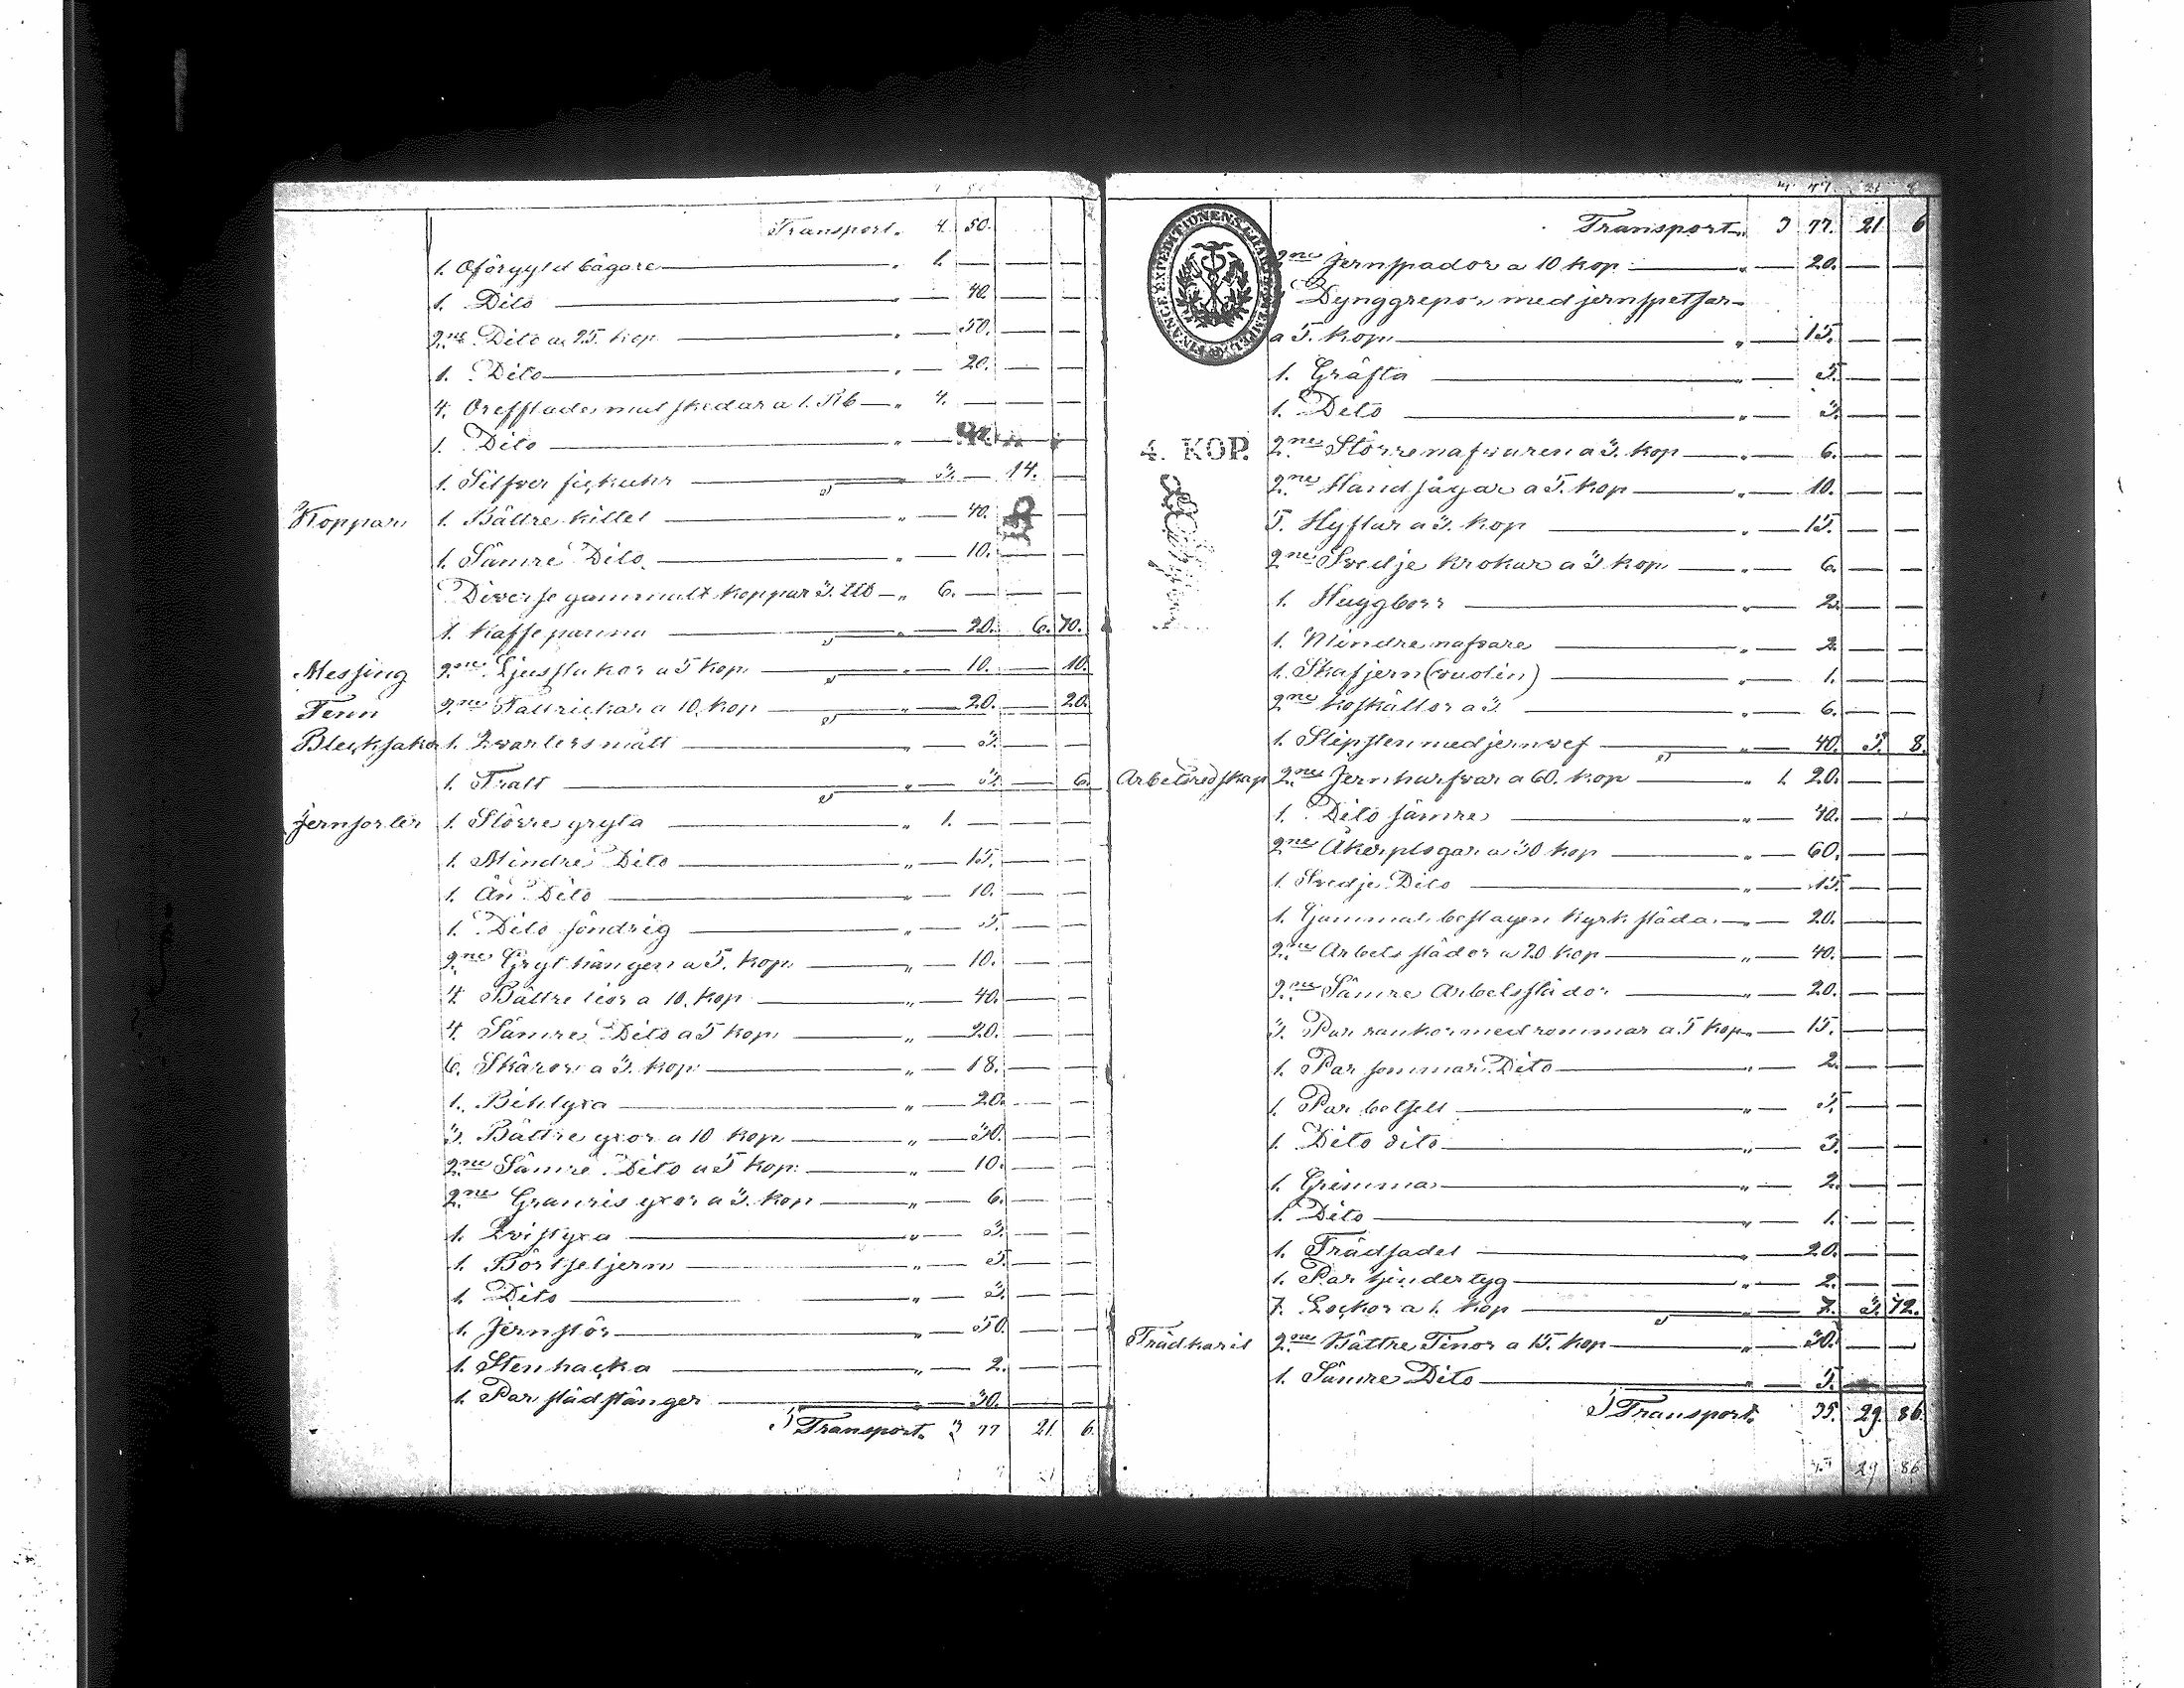 Transport. 4. 50.
1. Oförgyld bägare " 1. — —
1. Dito " — 40. — —
2ne Dito a 25. kop " — 50. — —
1. Dito " — 20. — —
4. Orefflade mat skedar a 1. Rb " 4. — — —
1. Dito "
1. Silfver fickuhr " 3. — 14. —
Koppar 1. Bättre kittel " — 40. —
1. Sämre Dito " — 10. — —
Diverse gammalt koppar 3. ℔ " 6. — — —
1. Kaffe panna " — 20. 6. 70.
Messing 2ne Ljusstakor a 5 kop " — 10. — 10.
Tenn 2ne Tallrickar a 10. kop " — 20. — 20.
Blecksaker 1. Qvarters mått " — 3. — —
1. Tratt " — 3. — 6.
Jernsorter 1. Större gryta " 1. — — —
1. Mindre Dito " — 15. — —
1. Än Dito " — 10. — —
1. Dito söndrig " — 5. — —
2ne Gryt hängen a 5. kop " — 10. — —
4. Bättre lior a 10. kop " — 40. — —
4. Sämre Dito a 5 kop " — 20. — —
6. Skäror a 3. kop " — 18. — —
1. Bihlyxa " — 20. — —
3. Bättre yxor a 10 kop " — 30. — —
2ne Sämre Dito a 5 kop " — 10. — —
2ne Granris yxor a 3. kop " — 6. — —
1. Qvistyxa " — 3. — —
1. Börtseljern " — 5. — —
1. Dito " — 3. — —
1. Jernstör " — 50. — —
1. Stenhacka " — 2. — —
1. Par städstänger " — 30. — —
Transport. 3 77 21. 6.
Transport. 3 77. 21 6
FINANCE EXPEDITIONENS
4. KOP.
2ne Jernspador a 10 kop " — 20. — —
Dynggrepor med jernspetsar
a 5. kop " — 15. — —
1. Gräfta " — 5. — —
1. Dito " — 3. — —
2ne Större nafvaren a 3. kop " — 6. — —
2ne Handsågar a 5. kop " — 10. — —
5. Hyflar a 3. kop " — 15. — —
2ne Svedje krokar a 3 kop " — 6. — —
1. Huggborr " — 2. — —
1. Mindre nafvare " — 2. — —
1. Skafjern (vuolin) " — 1. — —
2ne koskällor a 3. " — 6. — —
1. Slipsten med jernvef " — 40. 3. 8.
Arbetsredskap 2ne Jernharfvar a 60. kop " 1. 20. — —
1. Dito sämre " — 40. — —
2ne Åkerplogar a 30 kop " — 60. — —
1. Svedje Dito " — 15. — —
1. Gammal beslagen Kyrk släda " — 20. — —
2ne Arbets slädor a 20 kop " — 40. — —
2ne Sämre Arbetsslädor " — 20. — —
3. Par rankor med rommar a 5 kop " — 15. — —
1. Par sommar Dito " — 2. — —
1. Par betselt " — 5. — —
1. Dito dito " — 3. — —
1. Grimma " — 2. — —
1. Dito " — 1. — —
1. Trädsadel " — 20. — —
1. Par tjudertyg " — 2. — —
7. Lockor a 1. kop " — 7. 3. 72.
Trädkaril 2ne Bättre Tinor a 15. kop " — 30. — —
1. Sämre Dito " — 5.
Transport. 35. 29. 86.
29 86